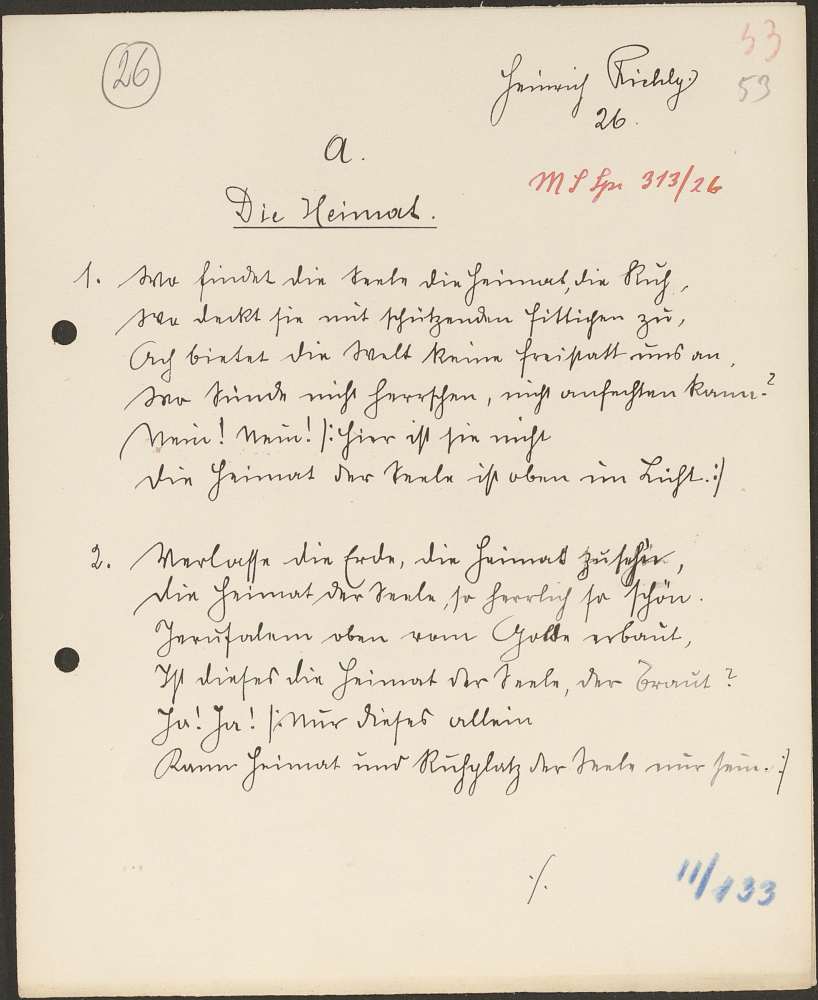 26
53
53
Heinrich
26.
a.
M S Spr 313/26
Die Heimat.
1. Wo findet die Seele die Heimat, die Ruh,
Wo deckt sie mit schützenden Fittigen zu,
Ach bietet die Welt keine Freistatt uns an,
Wo Sünde nicht herrschen, nicht anfechten kann?
Nein! Nein! |: Hier ist sie nicht
Die Heimat der Seele ist oben im Licht. :|
2. Verlasse die Erde, die Heimat zu sehn,
Die Heimat der Seele, so herrlich so schön.
Jerusalem oben vom Golde erbaut,
Ist dieses die Heimat der Seele, der Braut?
Ja! Ja! |: Nur dieses allein
Kann Heimat und Ruhplatz der Seele nur sein. :|
./.
11/133